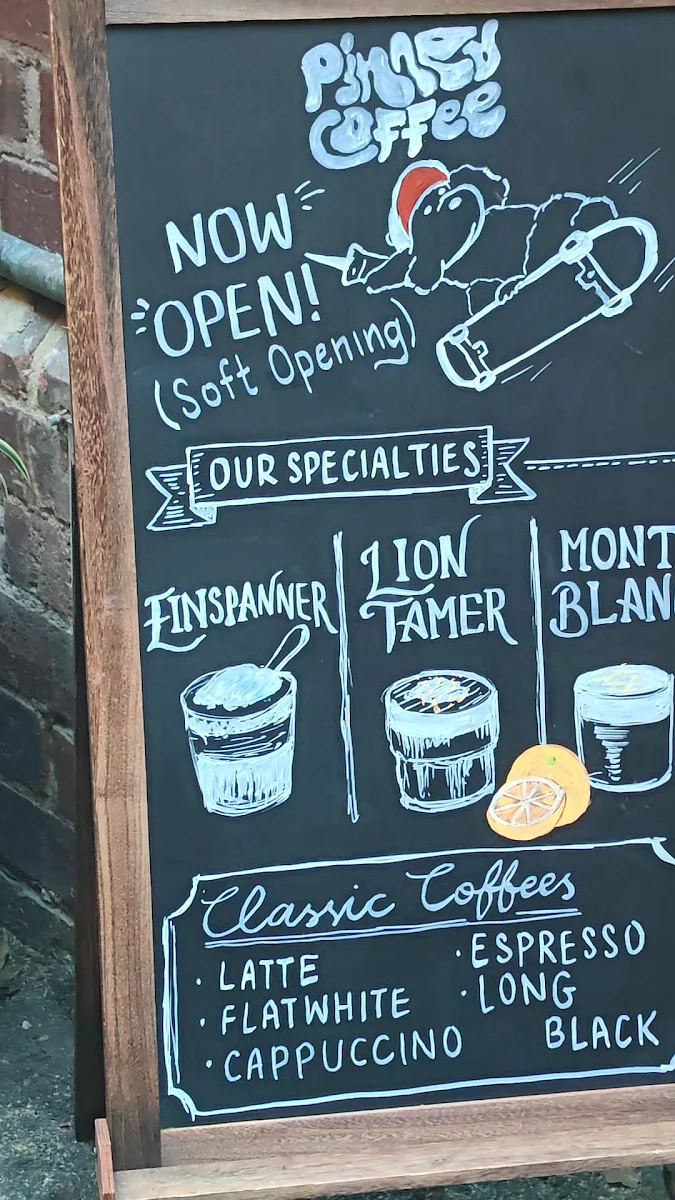 Pinned
Coffee
NOW
OPEN!
(Soft Opening)
OUR SPECIALTIES
EINSPANNER
LION
TAMER
MONT
BLAN
Classic Coffees
· LATTE
· FLATWHITE
· CAPPUCCINO
· ESPRESSO
· LONG
BLACK